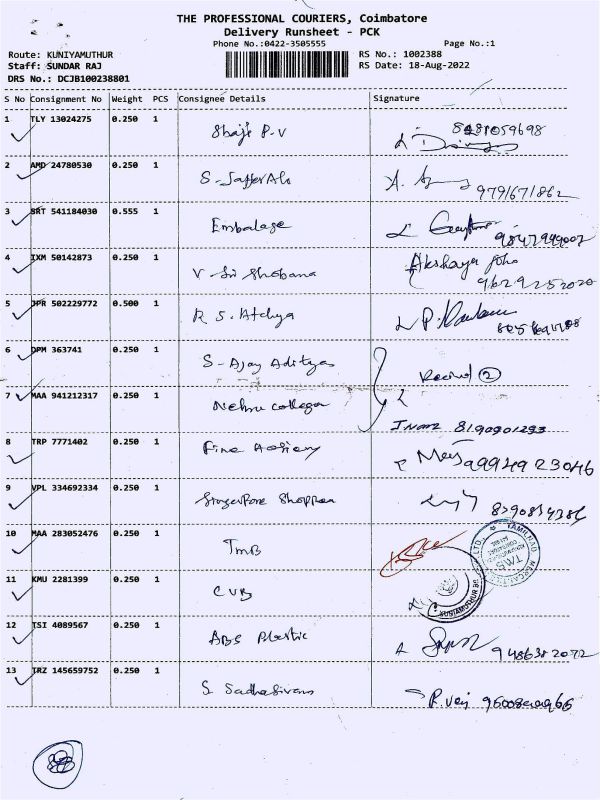 THE PROFESSIONAL COURIERS, Coimbatore
Delivery Runsheet - PCK
Phone No.:0422-3505555 Page No.:1
Route: KUNIYAMUTHUR RS No.: 1002388
Staff: SUNDAR RAJ RS Date: 18-Aug-2022
DRS No.: DCJB100238801
S No Consignment No Weight PCS Consignee Details Signature
1 TLY 13024275 0.250 1 Shaji P.V
2 AMD 24780530 0.250 1 S. Jaffer Ali 9791671862
3 SRT 541184030 0.555 1 Embalage
4 IXM 50142873 0.250 1 V Sri Shobana Akshaya 9629252020
5 JPR 502229772 0.500 1 R S. Atchya
6 DPM 363741 0.250 1 S. Ajay Adityas Received 2
7 MAA 941212317 0.250 1 Nehru college 8190901293
8 TRP 7771402 0.250 1 Fine 9994923046
9 VPL 334692334 0.250 1 Singapore Shoppee
10 MAA 283052476 0.250 1 TMB
TMB
11 KMU 2281399 0.250 1 CUB
KUNIAMUTHUR
12 TSI 4089567 0.250 1 ABS Plastic 9486382072
13 TRZ 145659752 0.250 1 S Sadhasivam